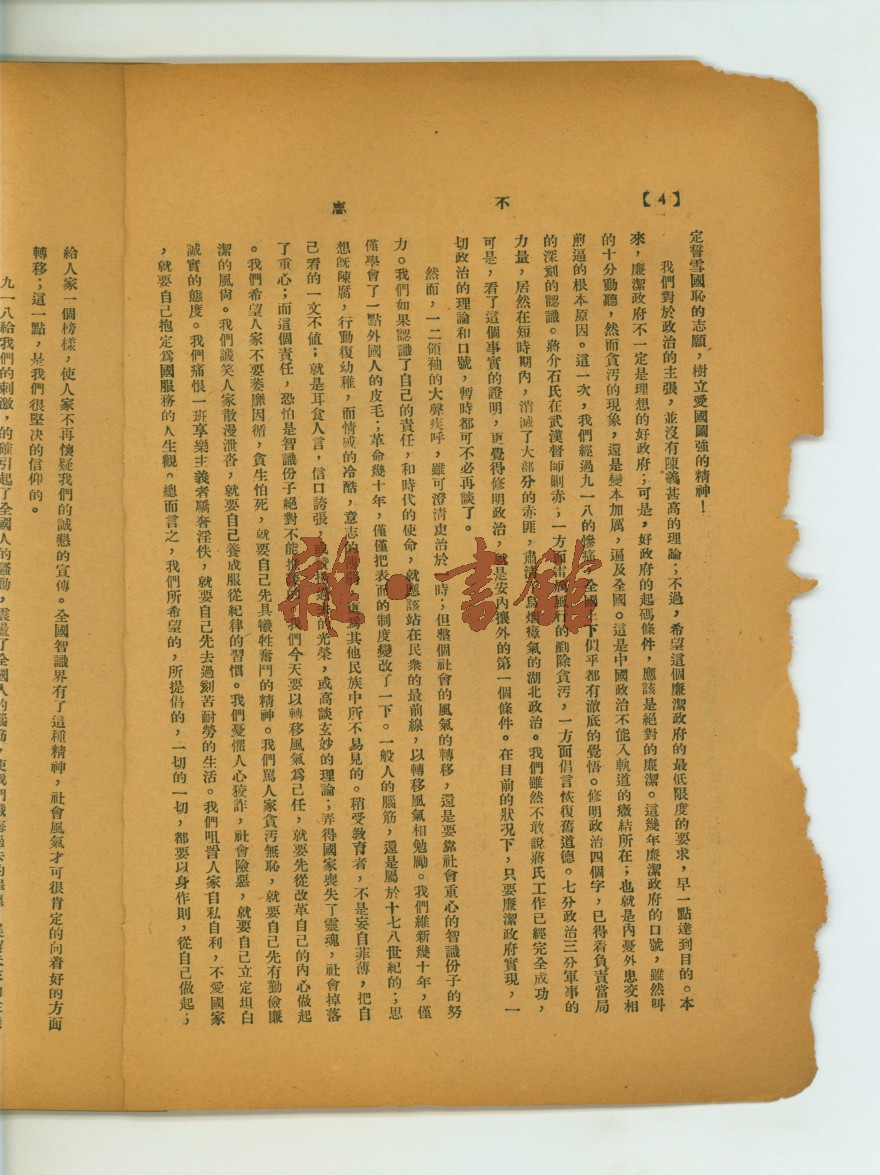 【4】
不
忘
定誓雪國恥的志願，樹立愛國圖強的精神！
我們對於政治的主張，並沒有陳義甚高的理論；不過，希望這個廉潔政府的最低限度的要求，早一點達到目的。本
來，廉潔政府不一定是理想的好政府；可是，好政府的起碼條件，應該是絕對的廉潔。這幾年廉潔政府的口號，雖然叫
的十分動聽，然而貪污的現象，還是變本加厲，遍及全國。這是中國政治不能入軌道的癥結所在；也就是內憂外患交相
煎逼的根本原因。這一次，我們經過九一八的慘痛，全國上下似乎都有澈底的覺悟。修明政治四個字，已得着負責當局
的深刻的認識。蔣介石氏在武漢督師剿赤；一方面雷厲風行的剷除貪污，一方面倡言恢復舊道德。七分政治三分軍事的
力量，居然在短時期內，消滅了大部分的赤匪，肅清了烏煙瘴氣的湖北政治。我們雖然不敢說蔣氏工作已經完全成功，
可是，看了這個事實的證明，更覺得修明政治，就是安內攘外的第一個條件。在目前的狀況下，只要廉潔政府實現，一
切政治的理論和口號，暫時都可不必再談了。
然而，一二領袖的大聲疾呼，雖可澄清吏治於一時；但整個社會的風氣的轉移，還是要靠社會重心的智識份子的努
力。我們如果認識了自己的責任，和時代的使命，就應該站在民衆的最前線，以轉移風氣相勉勵。我們維新幾十年，僅
僅學會了一點外國人的皮毛；革命幾十年，僅僅把表面的制度變改了一下。一般人的腦筋，還是屬於十七八世紀的；思
想既陳腐，行動復幼稚，而情感的冷酷，意志的 其他民族中所不易見的。稍受教育者，不是妄自菲薄，把自
己看的一文不值；就是耳食人言，信口誇張， 的光榮，或高談玄妙的理論；弄得國家喪失了靈魂，社會掉落
了重心；而這個責任，恐怕是智識份子絕對不能 我們今天要以轉移風氣爲己任，就要先從改革自己的內心做起
。我們希望人家不要萎靡因循，貪生怕死，就要自己先具犧牲奮鬥的精神。我們罵人家貪污無恥，就要自己先有勤儉廉
潔的風尙。我們譏笑人家散漫泄沓，就要自己養成服從紀律的習慣。我們憂懼人心狡詐，社會險惡，就要自己立定坦白
誠實的態度。我們痛恨一班享樂主義者驕奢淫佚，就要自己先去過刻苦耐勞的生活。我們咀詈人家自私自利，不愛國家
，就要自己抱定爲國服務的人生觀。總而言之，我們所希望的，所提倡的，一切的一切，都要以身作則，從自己做起；
給人家一個榜樣，使人家不再懷疑我們的誠懇的宣傳。全國智識界有了這種精神，社會風氣才可很肯定的向着好的方面
轉移；這一點，是我們很堅決的信仰的。
九一八給我們的刺激，的確引起了全國人的
雜·書館